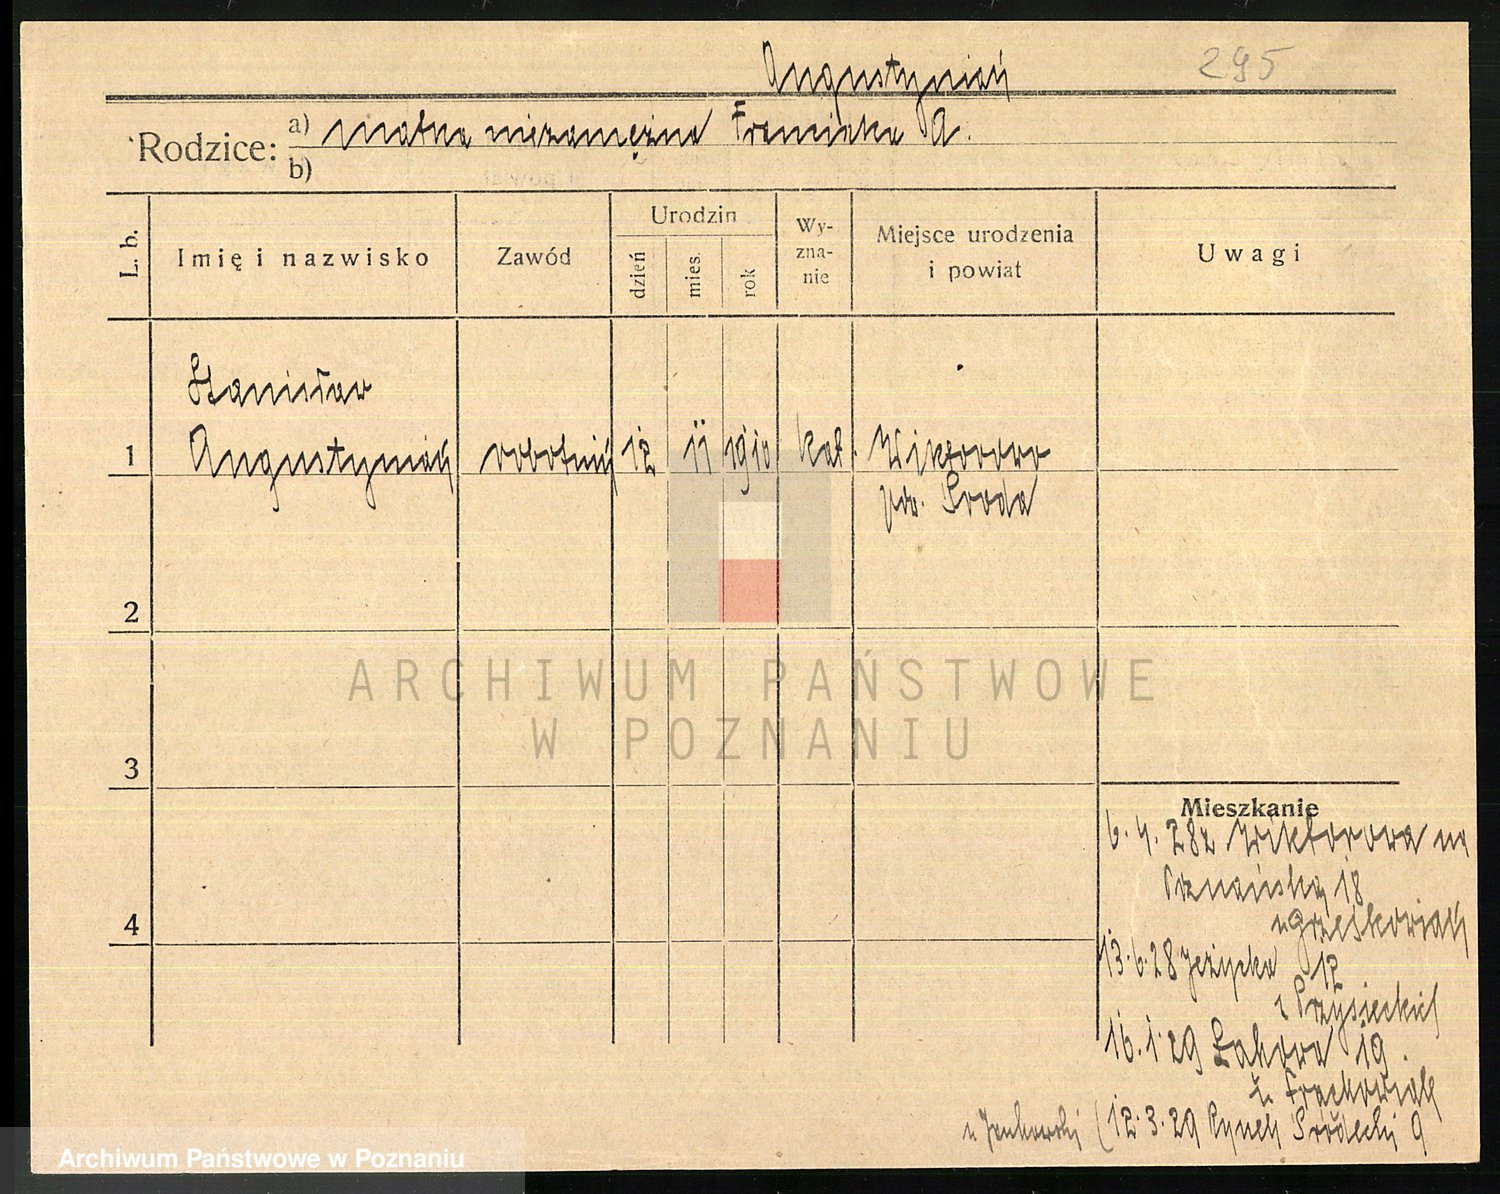 Augustyniak
295
Rodzice:
a) matka niezamężna Franciszka A.
b)
L. b.
Imię i nazwisko
Zawód
Urodzin
dzień
mies.
rok
Wy-
zna-
nie
Miejsce urodzenia
i powiat
Uwagi
Stanisław
1 Augustyniak robotnik 12 11 1910 kat. Wiktorowo
pw. Środa
2
ARCHIWUM PAŃSTWOWE
W POZNANIU
3
Mieszkanie
6. 4. 28 z Wiktorowa na
Poznańską 18
u Grześkowiak
4
13. 6. 28 Jeżycka 12
Przysieckich
16. 1. 29 Łąkowa 19.
u Frąckowiak
u Jankowski (12. 3. 29 Rynek Śródecki 9
Archiwum Państwowe w Poznaniu